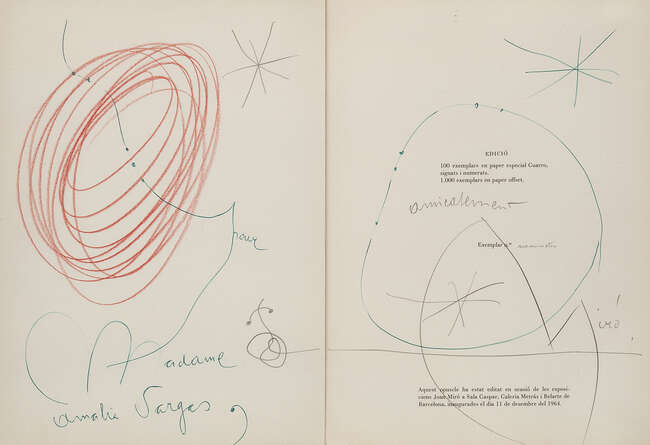 pour
Madame
Amalie Vargas
EDICIÓ
100 exemplars en paper especial Guarro,
signats i numerats.
1.000 exemplars en paper offset.
amicalement
Exemplar n.º
Miró.
Aquest opuscle ha estat editat en ocasió de les exposi-
cions Joan Miró a Sala Gaspar, Galeria Metràs i Belarte de
Barcelona, inaugurades el dia 11 de desembre del 1964.